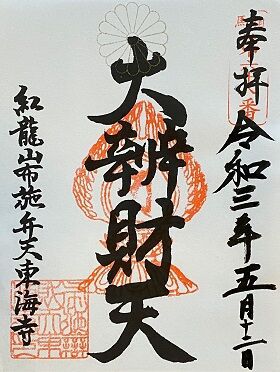 奉拝 令和三年五月十二日
大辨財天
紅龍山布施弁天東海寺